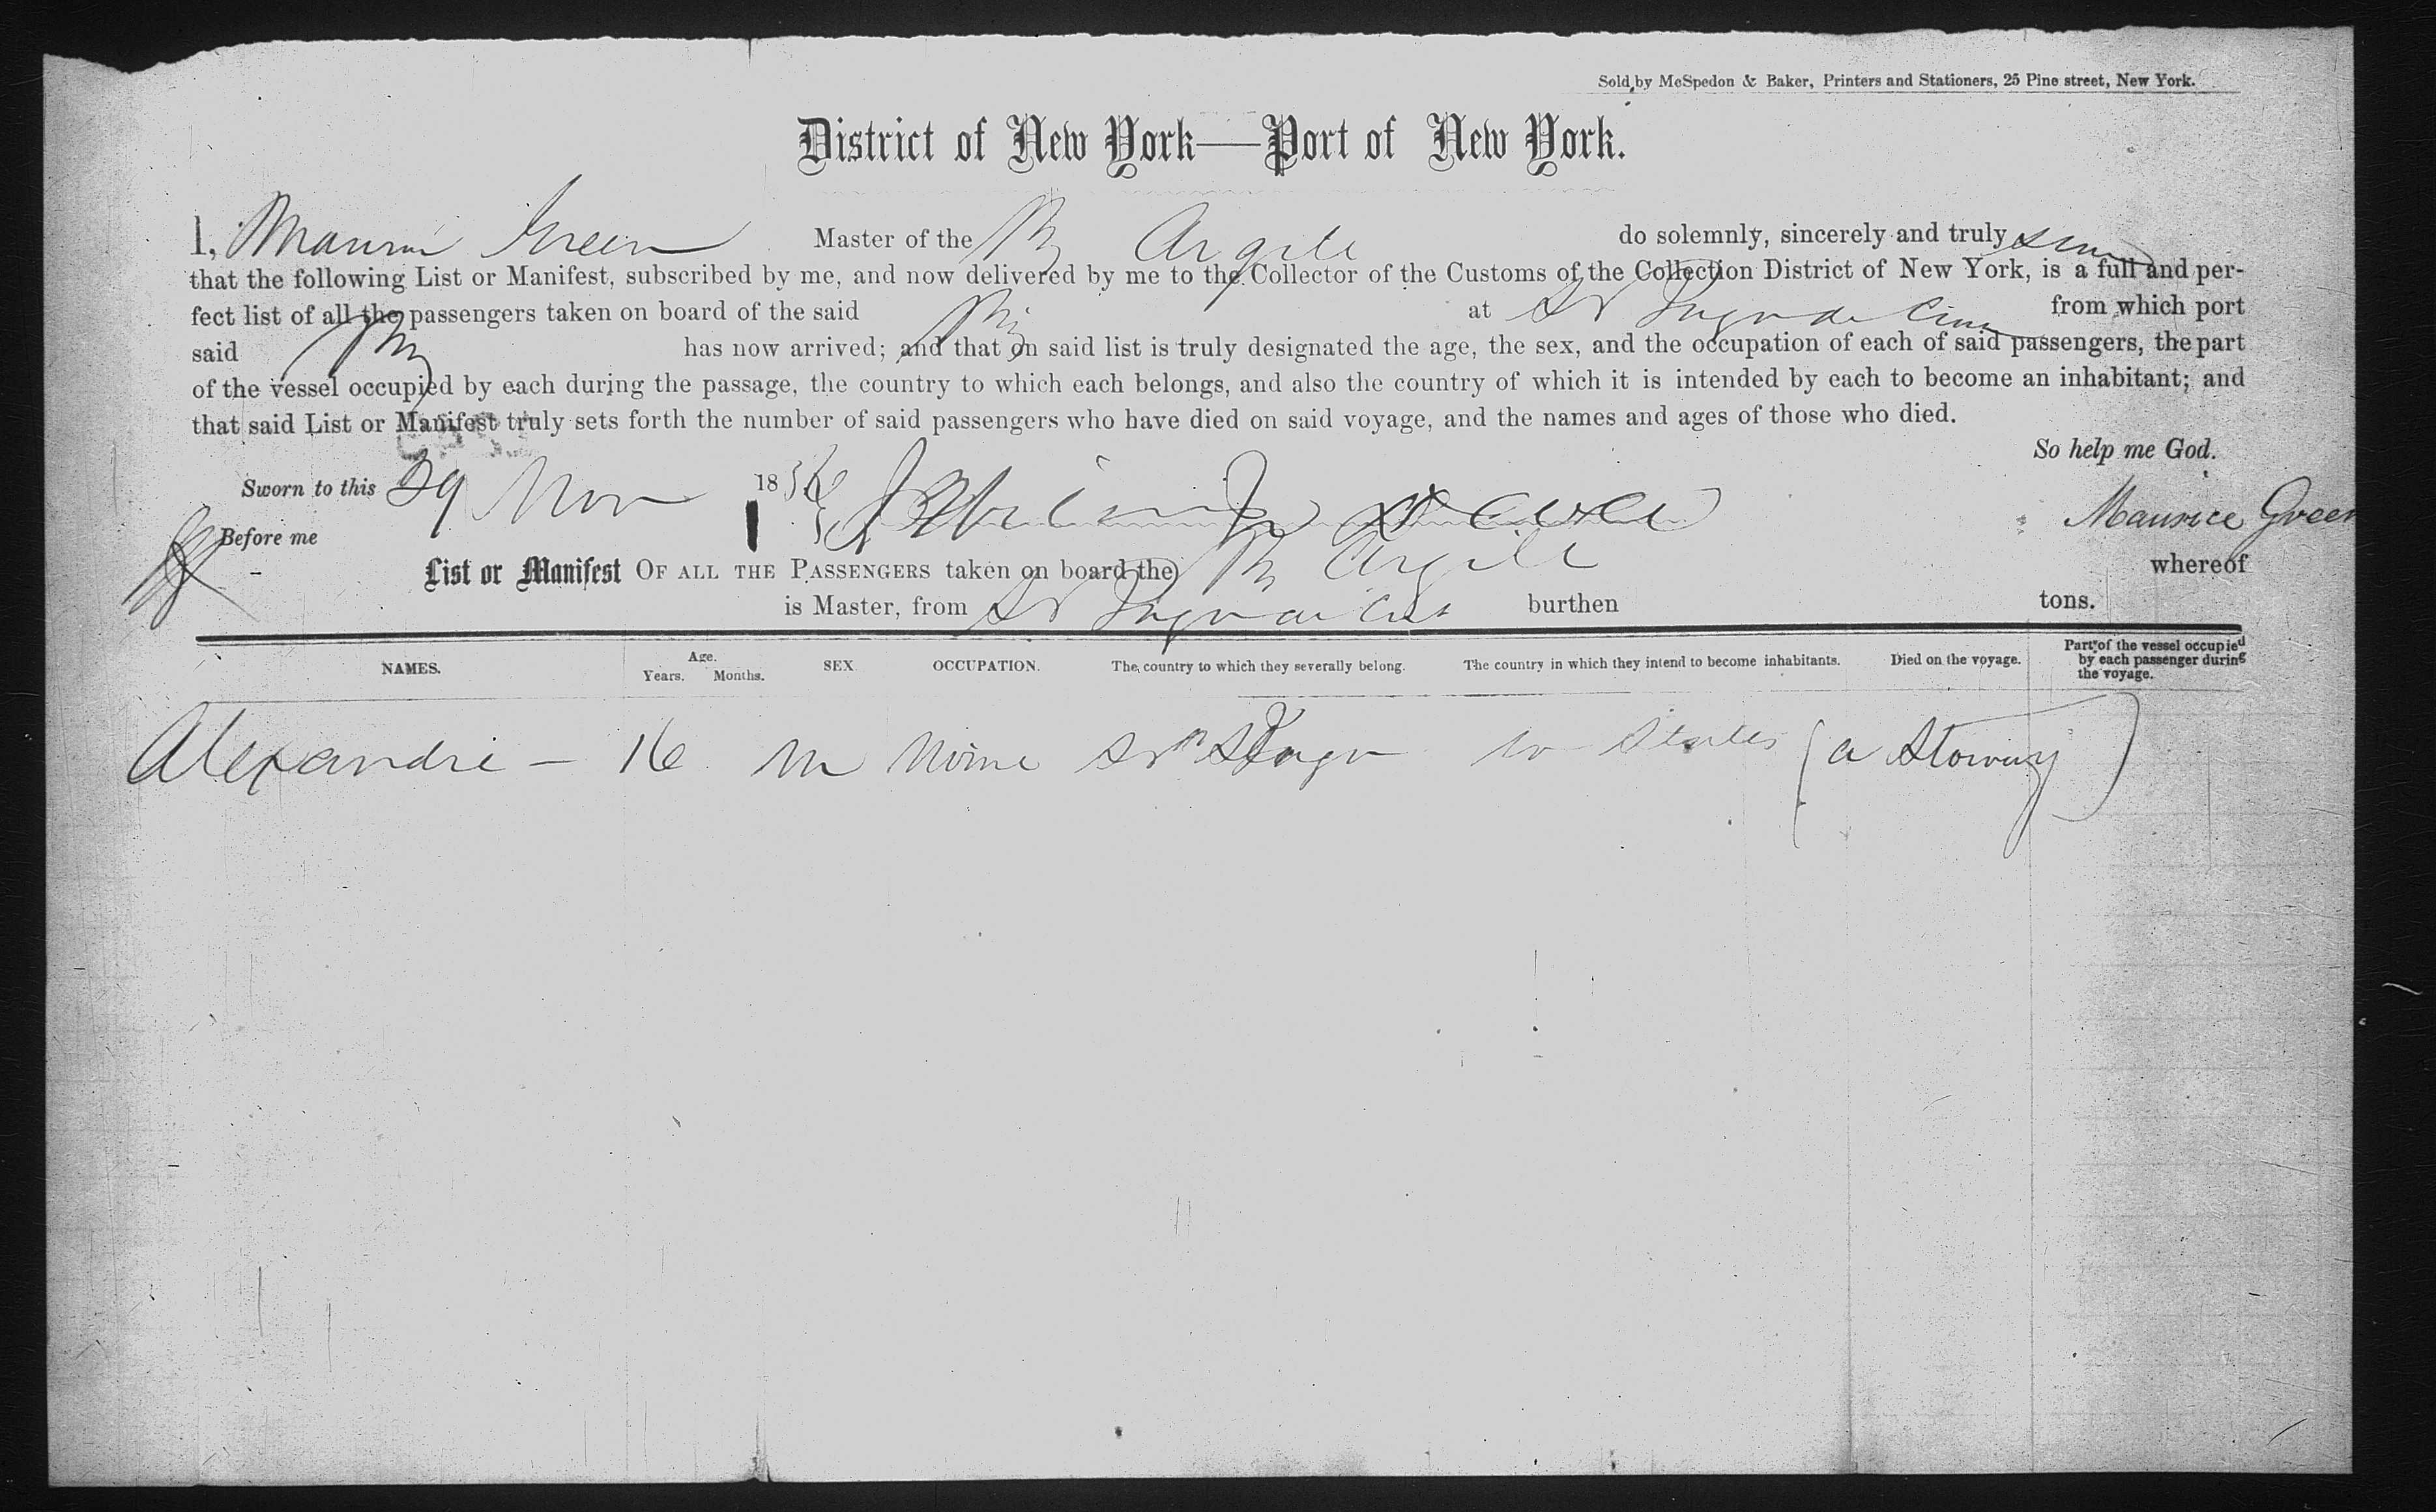 Sold by McSpedon & Baker, Printers and Stationers, 25 Pine street, New York.
District of New York—Port of New York.
I, Maurice Green Master of the Argile do solemnly, sincerely and truly swear
that the following List or Manifest, subscribed by me, and now delivered by me to the Collector of the Customs of the Collection District of New York, is a full and per-
fect list of all the passengers taken on board of the said at St from which port
said has now arrived; and that on said list is truly designated the age, the sex, and the occupation of each of said passengers, the part
of the vessel occupied by each during the passage, the country to which each belongs, and also the country of which it is intended by each to become an inhabitant; and
that said List or Manifest truly sets forth the number of said passengers who have died on said voyage, and the names and ages of those who died.
So help me God.
Sworn to this 29 Nov 1856 Maurice Green
Before me
List or Manifest OF ALL THE PASSENGERS taken on board the Argile whereof
is Master, from St burthen tons.
NAMES. Age. Years. Months. SEX OCCUPATION. The country to which they severally belong. The country in which they intend to become inhabitants. Died on the voyage. Part of the vessel occupied by each passenger during the voyage.
Alexandre — 16 M None St States (a Stoway)